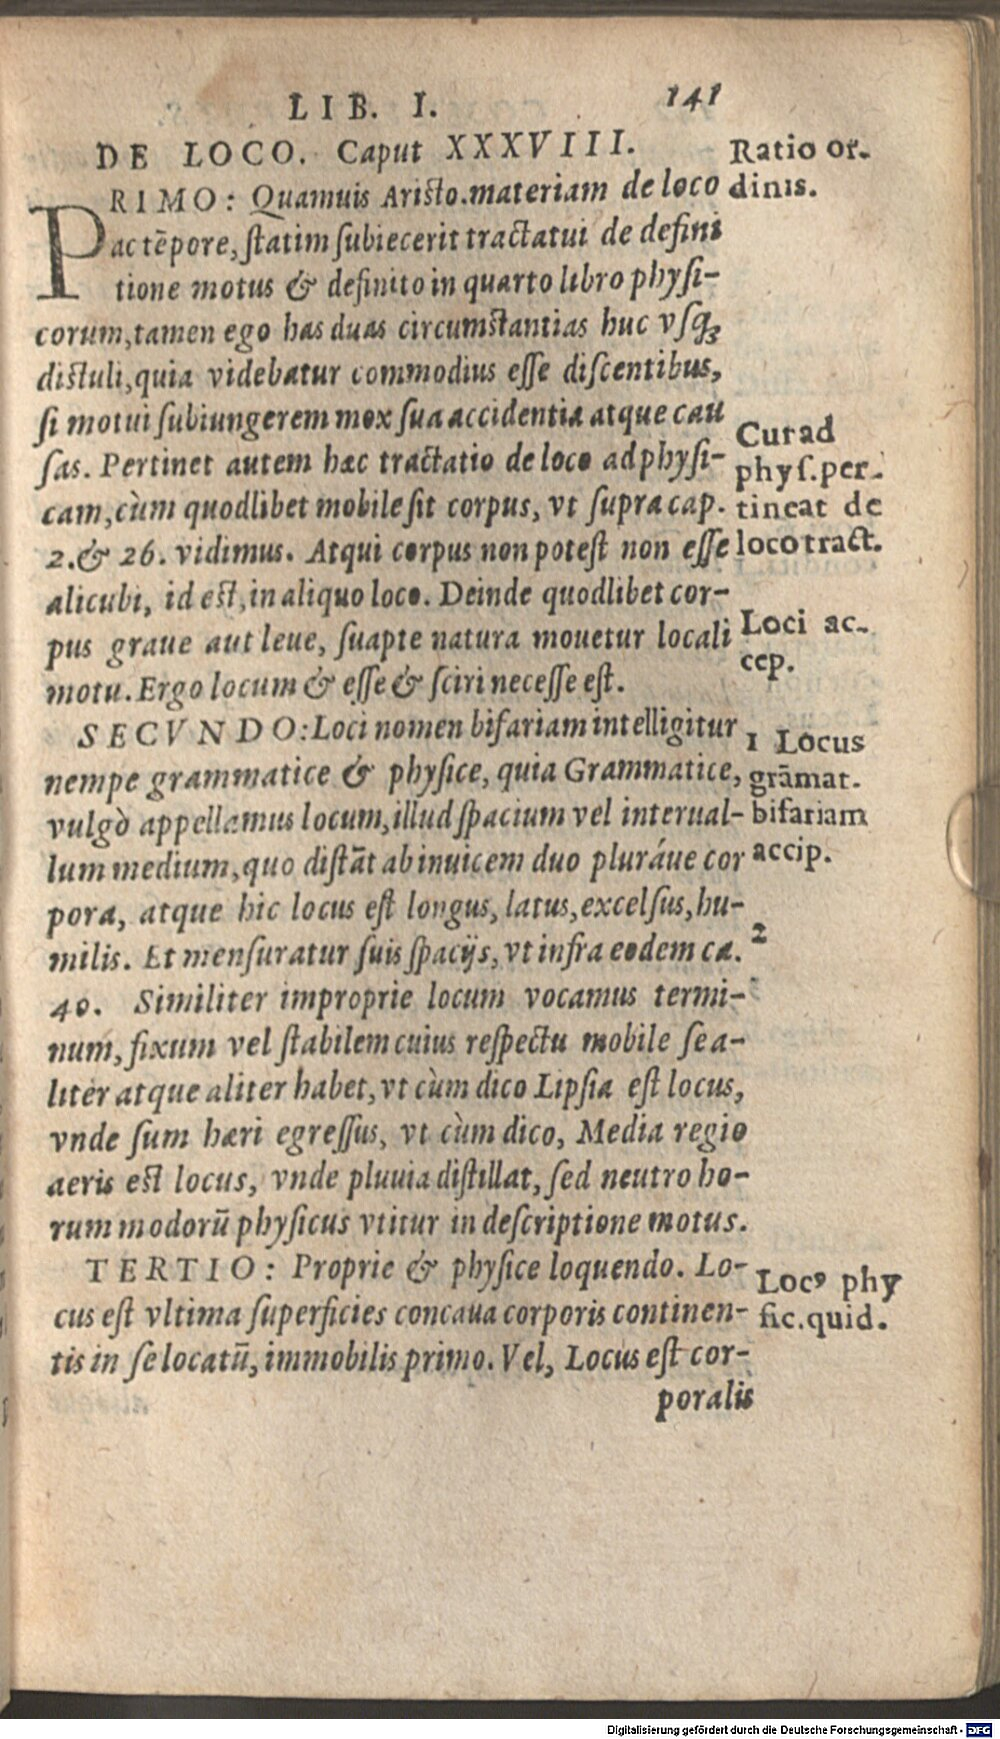 LIB. I. 141
DE LOCO. Caput XXXVIII.
PRIMO: Quamuis Aristo. materiam de loco
ac tēpore, statim subiecerit tractatui de defini
tione motus & definito in quarto libro physi-
corum, tamen ego has duas circumstantias huc vsqꝫ
distuli, quia videbatur commodius esse discentibus,
si motui subiungerem mox sua accidentia atque cau
sas. Pertinet autem hæc tractatio de loco ad physi-
cam, cùm quodlibet mobile sit corpus, vt supra cap.
2. & 26. vidimus. Atqui corpus non potest non esse
alicubi, id est, in aliquo loco. Deinde quodlibet cor-
pus graue aut leue, suapte natura mouetur locali
motu. Ergo locum & esse & sciri necesse est.
SECVNDO: Loci nomen bifariam intelligitur
nempe grammatice & physice, quia Grammatice,
vulgò appellamus locum, illud spacium vel interual-
lum medium, quo distāt ab inuicem duo pluráue cor
pora, atque hic locus est longus, latus, excelsus, hu-
milis. Et mensuratur suis spacijs, vt infra eodem ca.
40. Similiter improprie locum vocamus termi-
num, fixum vel stabilem cuius respectu mobile se a-
liter atque aliter habet, vt cùm dico Lipsia est locus,
vnde sum hæri egressus, vt cùm dico, Media regio
aeris est locus, vnde pluuia distillat, sed neutro ho-
rum modorū physicus vtitur in descriptione motus.
TERTIO: Proprie & physice loquendo. Lo-
cus est vltima superficies concaua corporis continen-
tis in se locatū, immobilis primo. Vel, Locus est cor-
poralis
Ratio or-
dinis.
Cur ad
phys. per-
tineat de
loco tract.
Loci ac-
cep.
1 Locus
grāmat.
bifariam
accip.
2
Locꝰ phy
sic. quid.
Digitalisierung gefördert durch die Deutsche Forschungsgemeinschaft - DFG